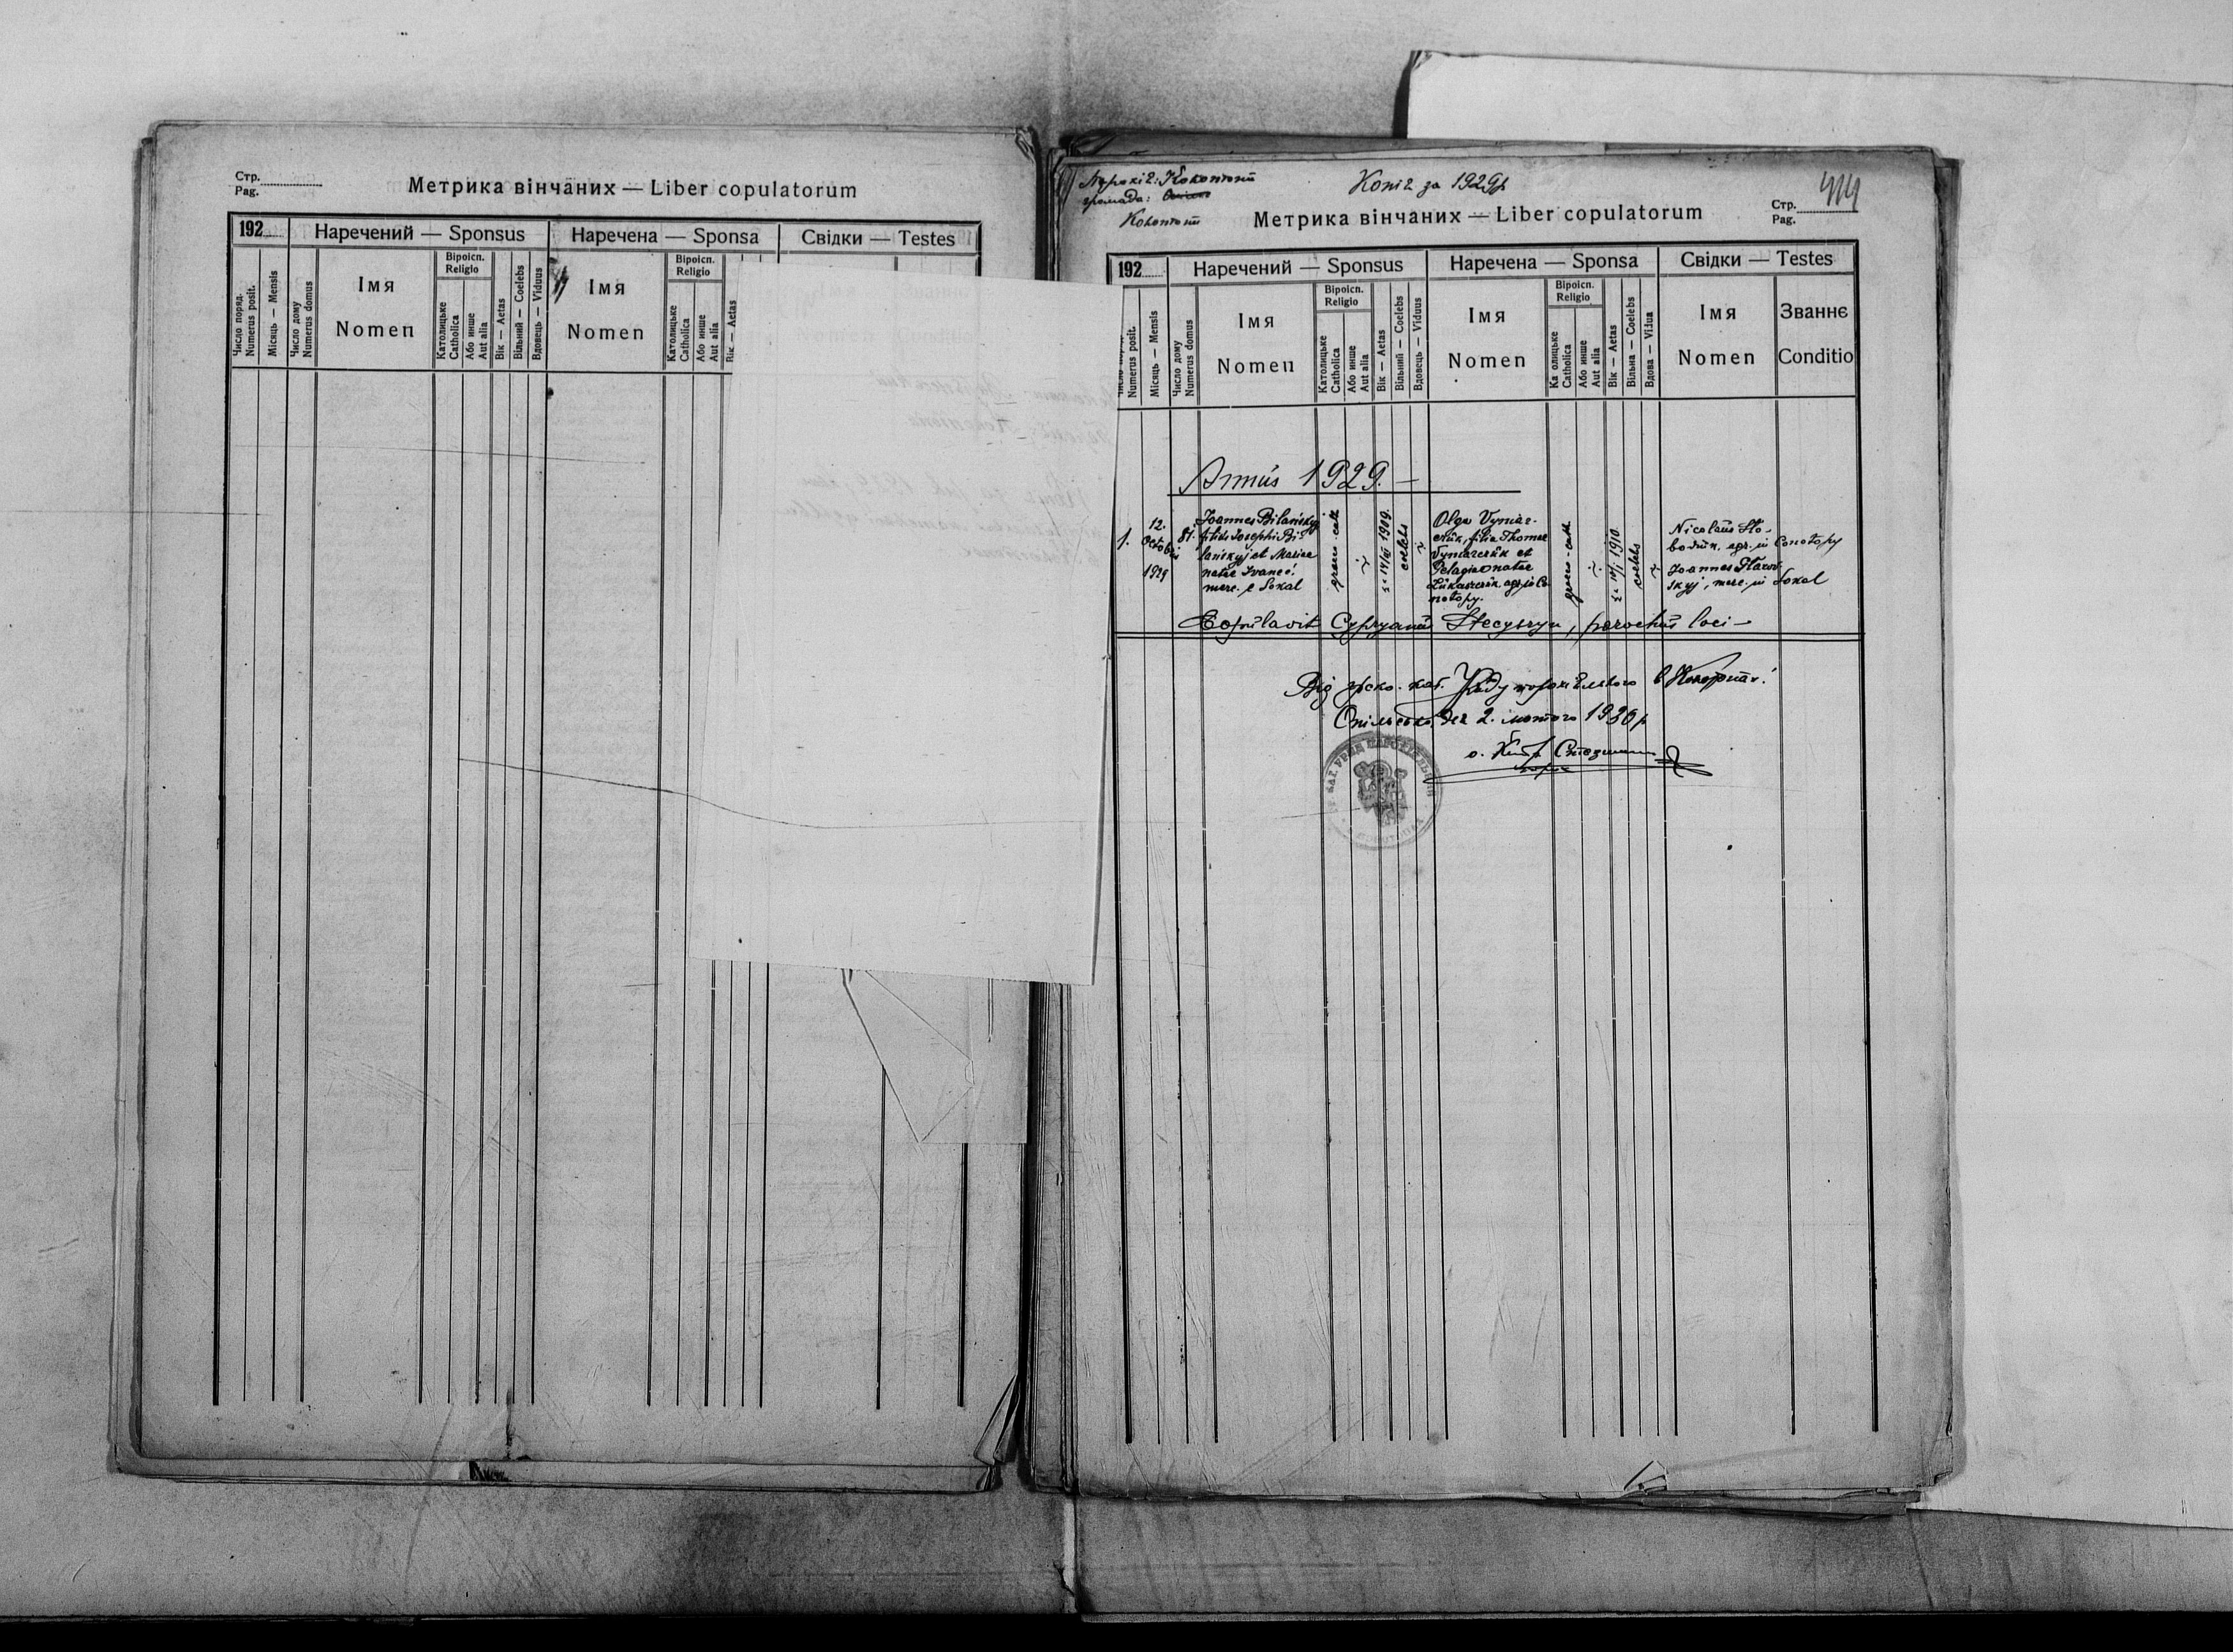 Стр.
Pag.
Метрика вінчаних — Liber copulatorum
192
Наречений — Sponsus
Наречена — Sponsa
Свідки — Testes
Число поряд.
Numerus posit.
Місяць — Mensis
Число дому
Numerus domus
Імя
Nomen
Віроісп.
Religio
Католицьке
Catholica
Або инше
Aut alia
Вік — Aetas
Вільний — Coelebs
Вдовець — Viduus
Імя
Nomen
Віроісп.
Religio
Католицьке
Catholica
Або инше
Aut alia
Вік — Aetas
Копія за 1929р
громада:
Конотопи
Метрика вінчаних — Liber copulatorum
Стр.
Pag.
192
Наречений — Sponsus
Наречена — Sponsa
Свідки — Testes
Numerus posit.
Місяць — Mensis
Число дому
Numerus domus
Імя
Nomen
Віроісп.
Religio
Католицьке
Catholica
Або инше
Aut alia
Вік — Aetas
Вільний — Coelebs
Вдовець — Viduus
Імя
Nomen
Віроісп.
Religio
Ка олицьке
Catholica
Або инше
Aut alia
Вік — Aetas
Вільна — Coelebs
Вдова — Vidua
Імя
Nomen
Званнє
Conditio
Annus 1929. —
1.
12.
Octobris
1929
81.
Joannes Bilańskyj
filius Josephi Bi-
lańskyj et Mariae
natae Ivanció
merc. e Sokal
graeco-cath
14/III 1909.
coelebs
Olga Vymaz-
čuk, filia Thomae
Vymazczuk et
Pelagiae natae
Lukaszczuk agr. in Co
notopy.
graeco-cath.
1910
coelebs
Nicolaus Slo-
bodiuk, agr. in Conotopy
Joannes
skyj, merc. in Sokal
Copulavit Cypryanus Stecyszyn, parochus loci —
Від греко-кат. Уряду парохіяльного в Конотопах.
Опільсько, дня 2. лютого 1930 р